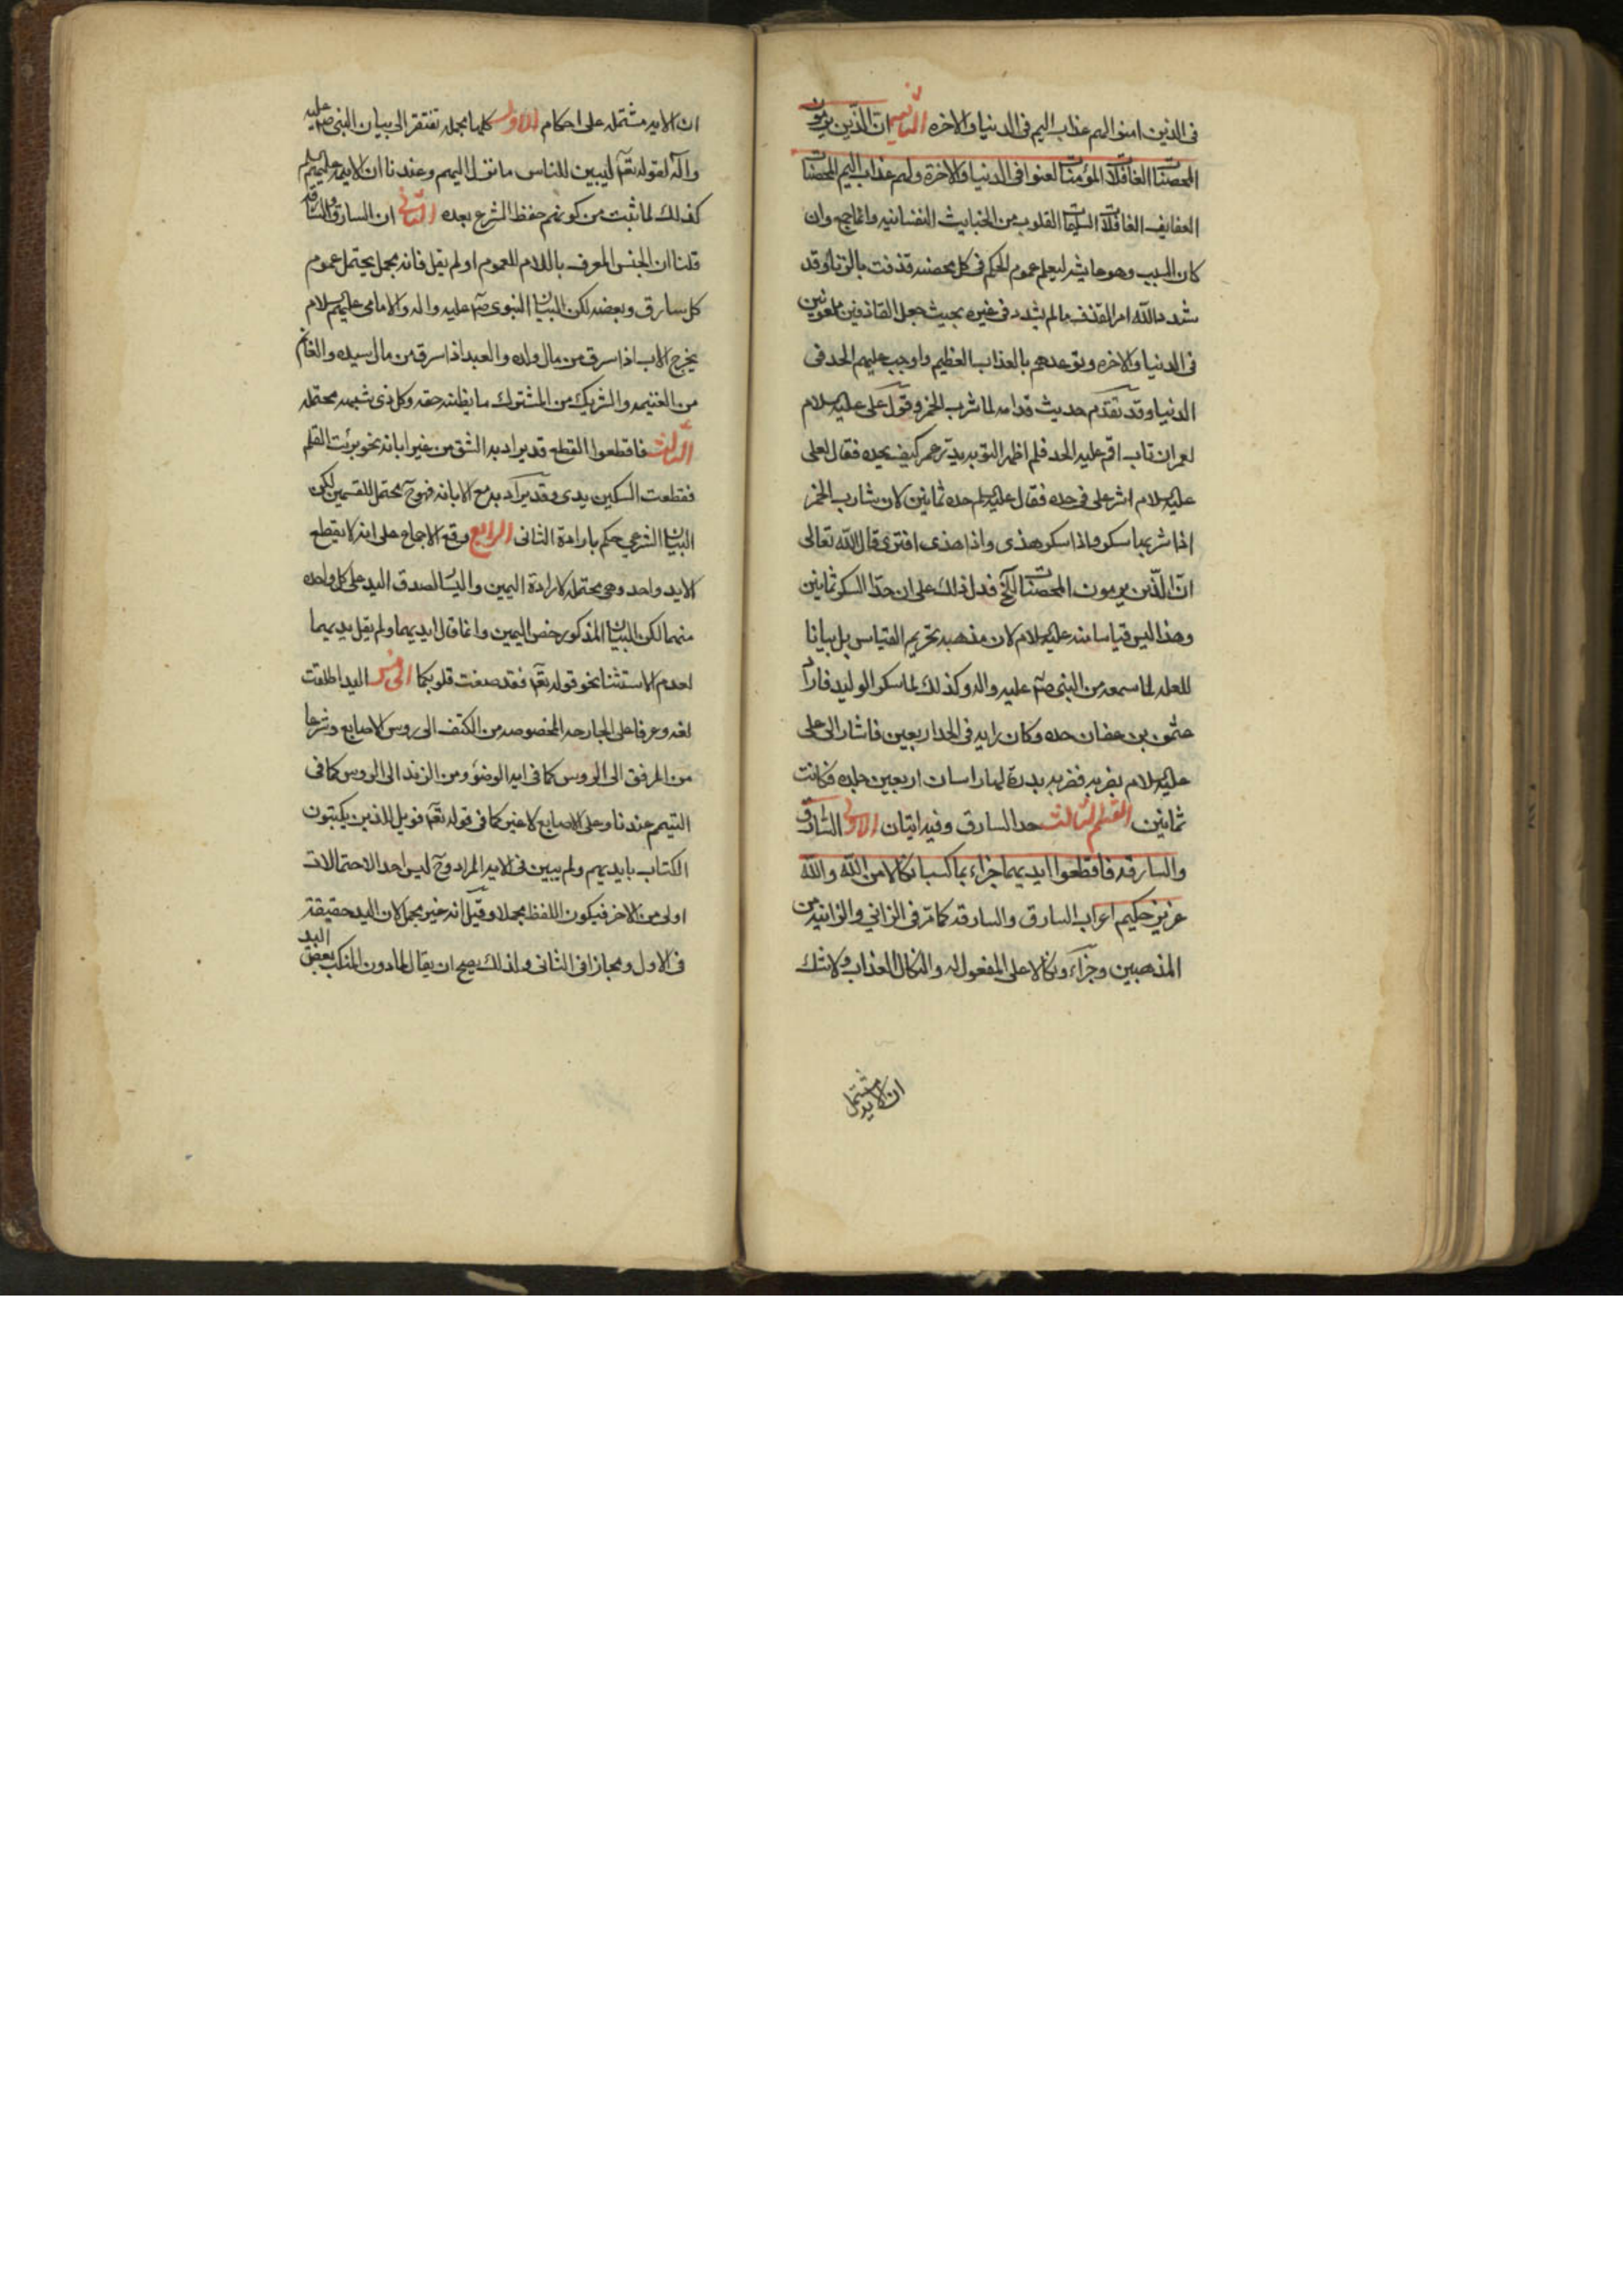 فى الذين امنوا لهم عذاب اليم فى الدنيا والاخره الثانيه ان الذين يرمون
المحصنات الغافلات المؤمنات لعنوا فى الدنيا والاخرة ولهم عذاب اليم المحصنات
العفايف الغافلات السليمات القلوب من الخبايث النفسانيه وانما جمع وان
كان السبب وهو عايشه ليعلم عموم الحكم فى كل محصنه قذفت بالزنا وقد
شدد الله امر القذف ما لم يشدد فى غيره بحيث جعل القاذفين ملعونين
فى الدنيا والاخره وتوعدهم بالعذاب العظيم واوجب عليهم الحد فى
الدنيا وقد تقدم حديث قدامه لما شرب الخمر وقول على عليه السلام
لعمر ان تاب اقم عليه الحد فلم اظهر التوبه لم يدر عمر كيف يحده فقال لعلى
عليه السلام اشر على فى حده فقال عليه السلم حده ثمانين لان شارب الخمر
اذا شربها سكر واذا سكر هذى واذا هذى افترى قال الله تعالى
ان الذين يرمون المحصنات الخ فدل ذلك على ان حد السكر ثمانين
وهذا ليس قياسا منه عليه السلام لان مذهبه تحريم القياس بل بيانا
للعله لما سمعه من النبى صم عليه واله وكذلك لما سكر الوليد فاراد
عثمن بن عفان حده وكان رايه فى الحد اربعين فاشار الى على
عليه السلام بضربه فضربه بدرة لها راسان اربعين جلده فكانت
ثمانين القسم الثالث حد السارق وفيه ايتان الاولى السارق
والسارقه فاقطعوا ايديهما جزاء بما كسبا نكالا من الله والله
عزيز حكيم اعراب السارق والسارقه كما مر فى الزانى والزانيه من
المذهبين وجزاء ونكالا على المفعول له والنكال العذاب ولا شك
ان الايه مشتمله
ان الايه مشتمله على احكام الاول كلها مجمله تفتقر الى بيان النبى صم عليه
واله لقوله تعم ليبين للناس ما نزل اليهم وعندنا ان الايمه عليهم السلم
كذلك لما ثبت من كونهم حفظ الشرع بعده الثانى ان السارق والسارقه
قلنا ان الجنس المعرف باللام للعموم او لم نقل فانه مجمل يحتمل عموم
كل سارق وبعضه لكن البيان النبوى صم عليه واله والامامى عليهم السلام
يخرج الاب اذا سرق من مال ولده والعبد اذا سرق من مال سيده والغانم
من الغنيمه والشريك من المشترك ما يظنه حقه وكل ذى شبهه محتمله
الثالث فاقطعوا القطع قد يراد به الشق من غير ابانه نحو بريت القلم
فقطعت السكين يدى وقد يراد به مع الابانه فهو ح محتمل للقسمين لكن
البيان الشرعى حكم بارادة الثانى الرابع وقع الاجماع على انه لا يقطع
الا يد واحد وهى محتمله لارادة اليمين واليسار لصدق اليد على كل واحده
منهما لكن البيان المذكور خص اليمين وانما قال ايديهما ولم يقل يديهما
لعدم الاستثنا نحو قوله تعم فقد صغت قلوبكما الخامس اليد اطلقت
لغه وعرفا على الجارحه المخصوصه من الكتف الى روس الاصابع وشرعا
من المرفق الى الروس كما فى ايه الوضوء ومن الزند الى الروس كما فى
التيمم عندنا وعلى الاصابع لا غير كما فى قوله تعم فويل للذين يكتبون
الكتاب بايديهم ولم يبين فى الايه المراد وح ليس احد الاحتمالات
اولى من الاخر فيكون اللفظ مجملا وقيل انه غير مجمل لان اليد حقيقة
فى الاول ومجازا فى الثانى ولذلك يصح ان يقال لما دون المنكب بعض اليد